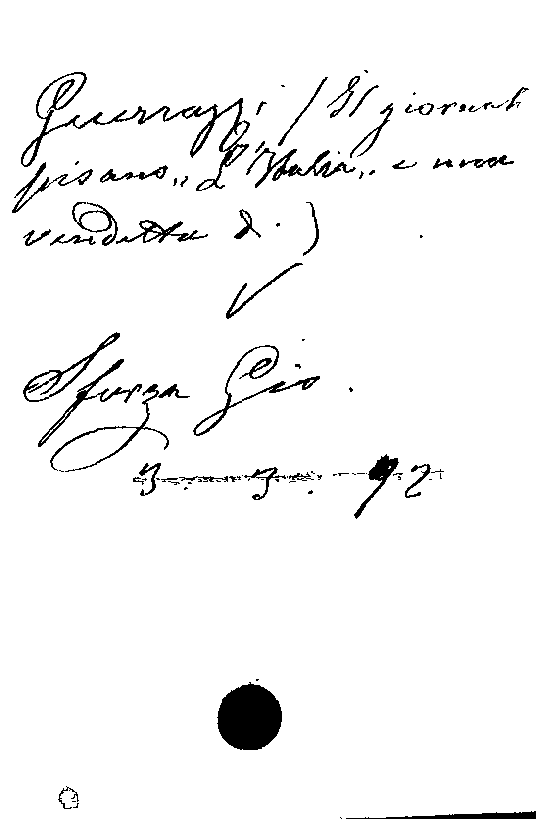 Guerrazzi / Il giornale
pisano „L'Italia„ e una
vendetta di )
Sforza Gio.
3. 3. 92